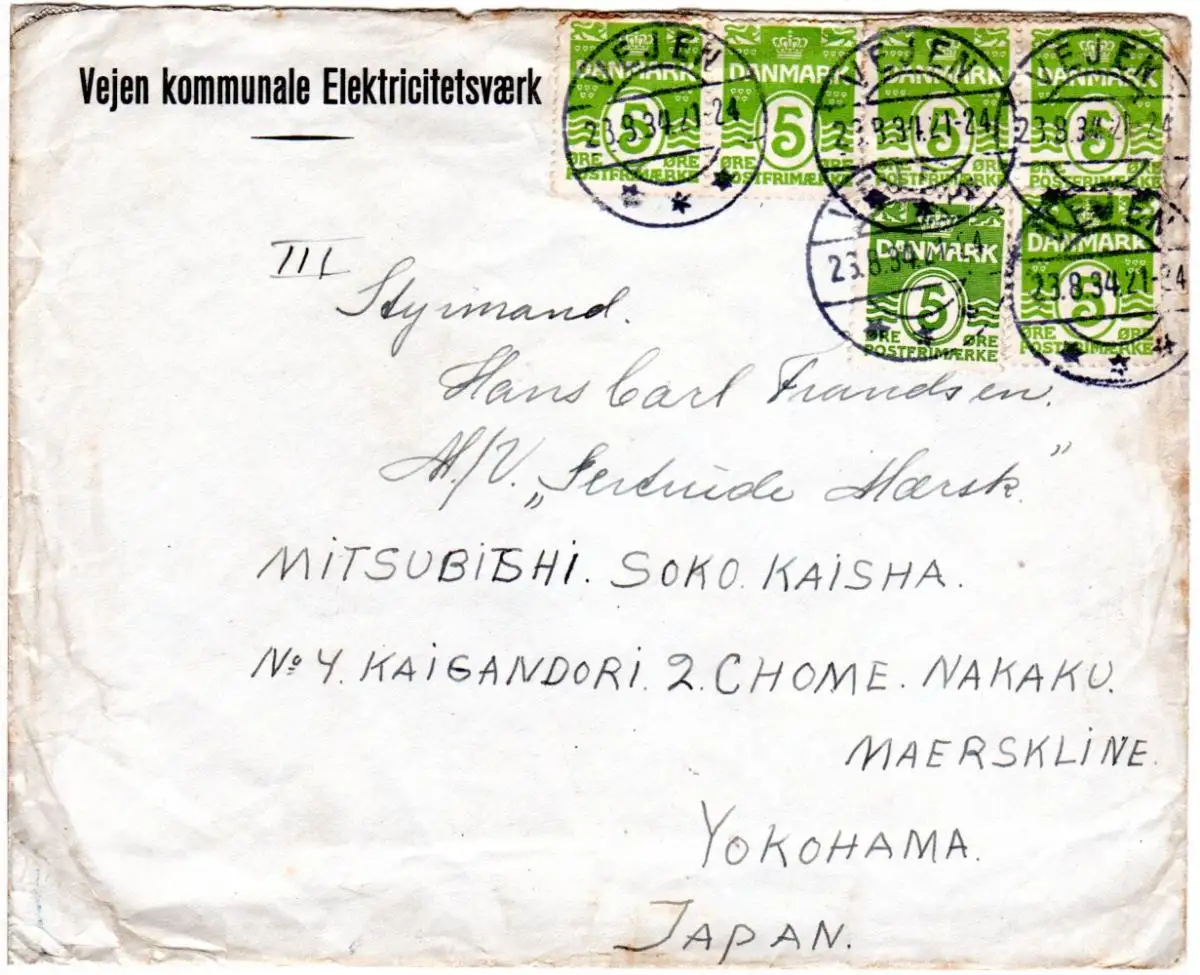 Vejen kommunale Elektricitetsværk
VEJEN VEJEN VEJEN
DANMARK DANMARK DANMARK DANMARK
23.8.34.21-24 23.8.34.21-24 23.8.34.21-24
5 5 5 5
ØRE ØRE ØRE ØRE ØRE ØRE ØRE ØRE
POSTFRIMÆRKE POSTFRIMÆRKE POSTFRIMÆRKE POSTFRIMÆRKE
VEJEN VEJEN
DANMARK DANMARK
23.8.34.21-24 23.8.34.21-24
5 5
ØRE ØRE ØRE ØRE
POSTFRIMÆRKE POSTFRIMÆRKE
III
Styrmand.
Hans Carl Frandsen.
M/V. „Gertrude Mærsk”
MITSUBITSHI. SOKO. KAISHA.
No 4. KAIGANDORI. 2. CHOME. NAKAKU.
MAERSKLINE.
YOKOHAMA.
JAPAN.